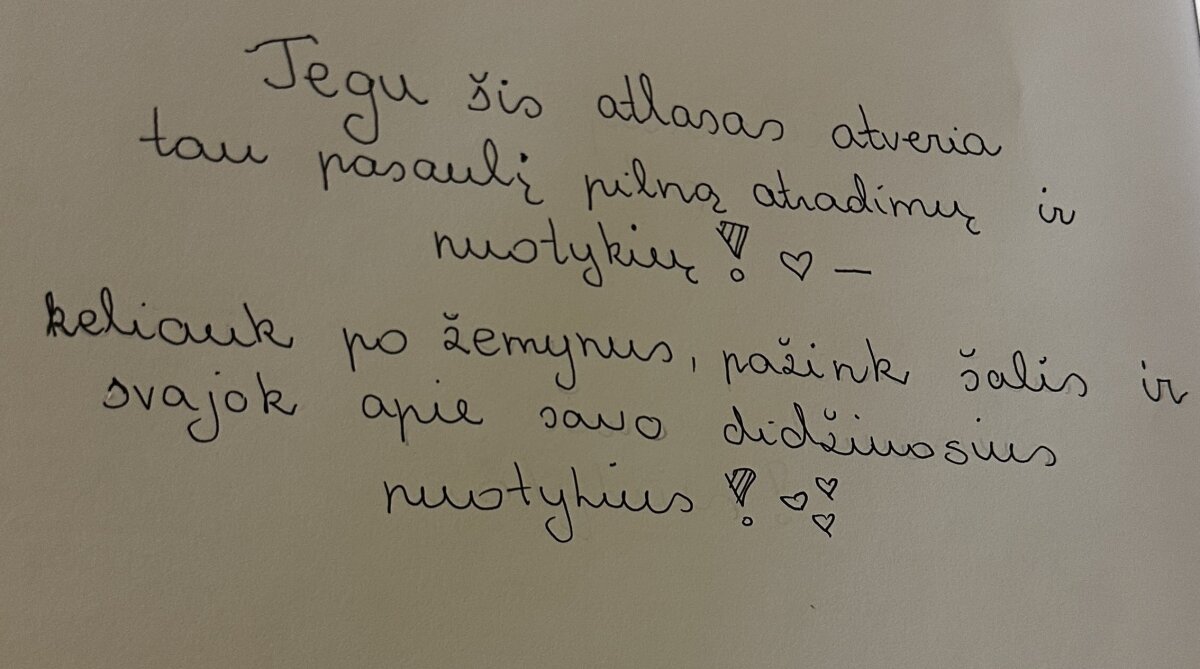 Tegu šis atlasas atveria
tau pasaulį pilną atradimų ir
nuotykių! ♡ —
keliauk po žemynus, pažink šalis ir
svajok apie savo didžiuosius
nuotykius! ♡♡♡